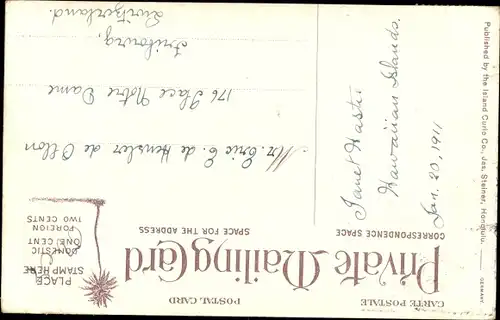 CARTE POSTALE
POSTAL CARD
Private Mailing Card
CORRESPONDENCE SPACE
SPACE FOR THE ADDRESS
PLACE
STAMP HERE
DOMESTIC
ONE CENT
FOREIGN
TWO CENTS
Jan. 20, 1911
Hawaiian Islands.
Janet Hastie
Mr. Eric E. de Hensler de Ollon
176 Place Notre Dame
Fribourg,
Switzerland.
Published by the Island Curio Co., Jas. Steiner, Honolulu.
GERMANY.